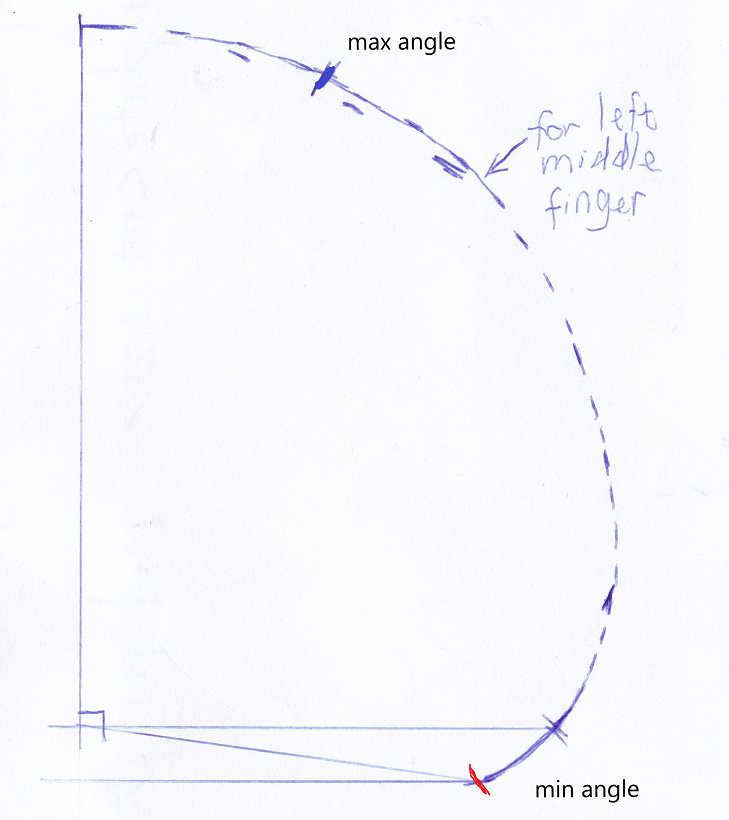 max angle
for left
middle
finger
min angle